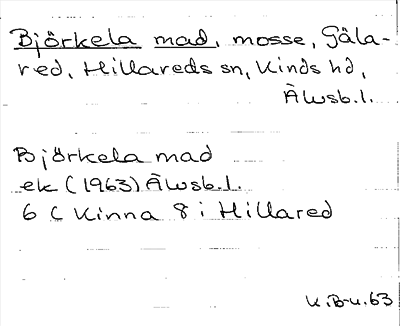 Björkela mad, mosse, Gäla-
red, Hillareds sn, Kinds hd,
Älvsb.l.
Björkela mad
ek (1963) Älvsb.l.
6 C Kinna 8 i Hillared
K.B-u.63